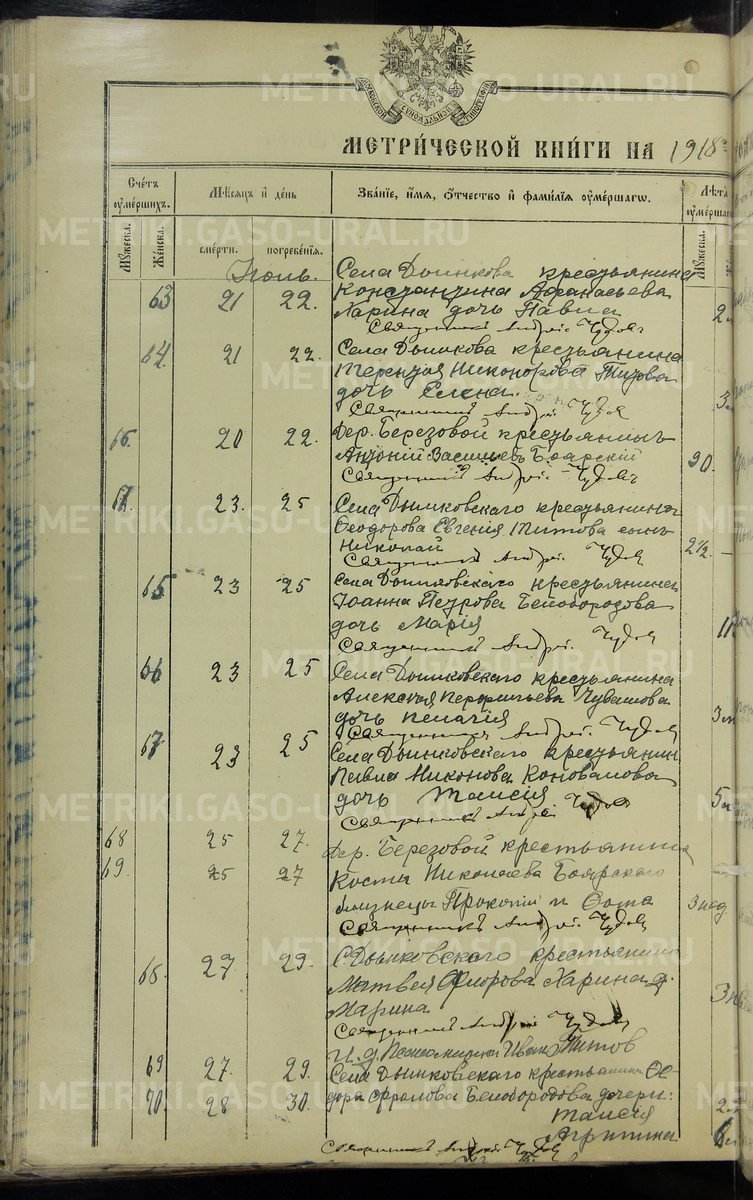 МЕТРИ́ЧЕСКОЙ КНИ́ГИ НА 1918
Сче́тъ ᲂу҆ме́ршихъ.
Мѣ́сяцъ и҆ де́нь
Зва́нїе, и҆́мя, ѻ҆́тчество и҆ фами́лїя ᲂу҆ме́ршагѡ.
Лѣ́та ᲂу҆ме́ршагѡ
Мꙋ́жеска.
Же́нска.
сме́рти.
погребе́нїя.
Мꙋ́жеска.
Іюль.
Села Дымкова крестьянина
63 21 22. Константина Афанасьева
Ларина дочь Павла 2
Священникъ Андрей Чудовъ
64. 21 22. Села Дымкова крестьянина
Терентія Никонорова Титова
дочь Елена. 3
Священникъ Андрей Чудов
66. 20 22. Дер. Березовой крестьянинъ
Антоній Васильевъ Боярскій 90.
Священникъ Андрей Чудовъ
67. 23. 25 Села Дымковскаго крестьянина
Ѳеодорова Евгенія Титова сынъ
Николай 2½
Священникъ Андрей Чудов
65 23 25 Села Дымковскаго крестьянина
Іоанна Петрова Белобородова
дочь Марія 11
Священникъ Андрей. Чудов
66 23 25 Села Дымковскаго крестьянина
Алексѣя Чувашова
дочь Пелагія 3
Священникъ Андрей. Чудов
67 23 25 Села Дымковскаго крестьянин
Павла Никонова Коновалова
дочь Таисія 5
Священникъ Андрей Чудов
68 25 27. Дер. Березовой крестьянина
69. 25 27 Кости Николаева Боярскаго
близнецы Прокопій и Ѳома 3 нед.
Священникъ Андрей Чудов
68. 27. 29. С. Дымковскаго крестьянина
Матвея Флорова Ларина д.
Марина 3
Священникъ Андрей Чудов
И. д. Псаломщика Иван Титов
69 27. 29. Села Дымковскаго крестьянина Ѳе-
70 28 30. дора Фролова Белобородова дочери:
Таисія 2
Агрипина
Священникъ Андрей Чудов
METRIKI.GASO-URAL.RU